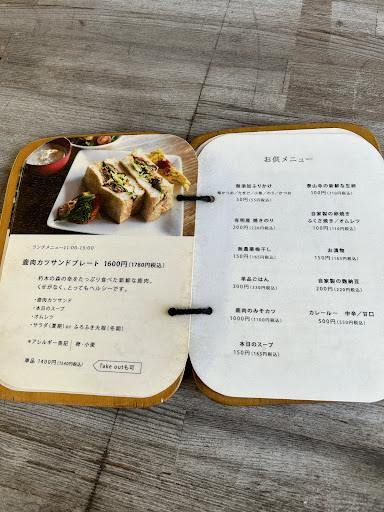 ランチメニュー11:00-15:00
鹿肉カツサンドプレート 1600円(1760円税込)
朽木の森の幸をたっぷり食べた新鮮な鹿肉。
くせがなく、とってもヘルシーです。
・鹿肉カツサンド
・本日のスープ
・オムレツ
・サラダ(夏期)or ふろふき大根(冬期)
*アレルギー表記 卵・小麦
単品 1400円(1540円税込)
Take outも可
お供メニュー
無添加ふりかけ
50円(55円税込)
有明産 焼きのり
100円(110円税込)
無農薬梅干し
150円(165円税込)
単品ごはん
300円(330円税込)
鹿肉のみそカツ
1000円(1100円税込)
本日のスープ
150円(165円税込)
泰山寺の新鮮な生卵
100円(110円税込)
自家製の卵焼き
ふくさ焼き/オムレツ
100円(110円税込)
お漬物
150円(165円税込)
自家製の麹納豆
200円(220円税込)
カレールー 中辛/甘口
500円(550円税込)